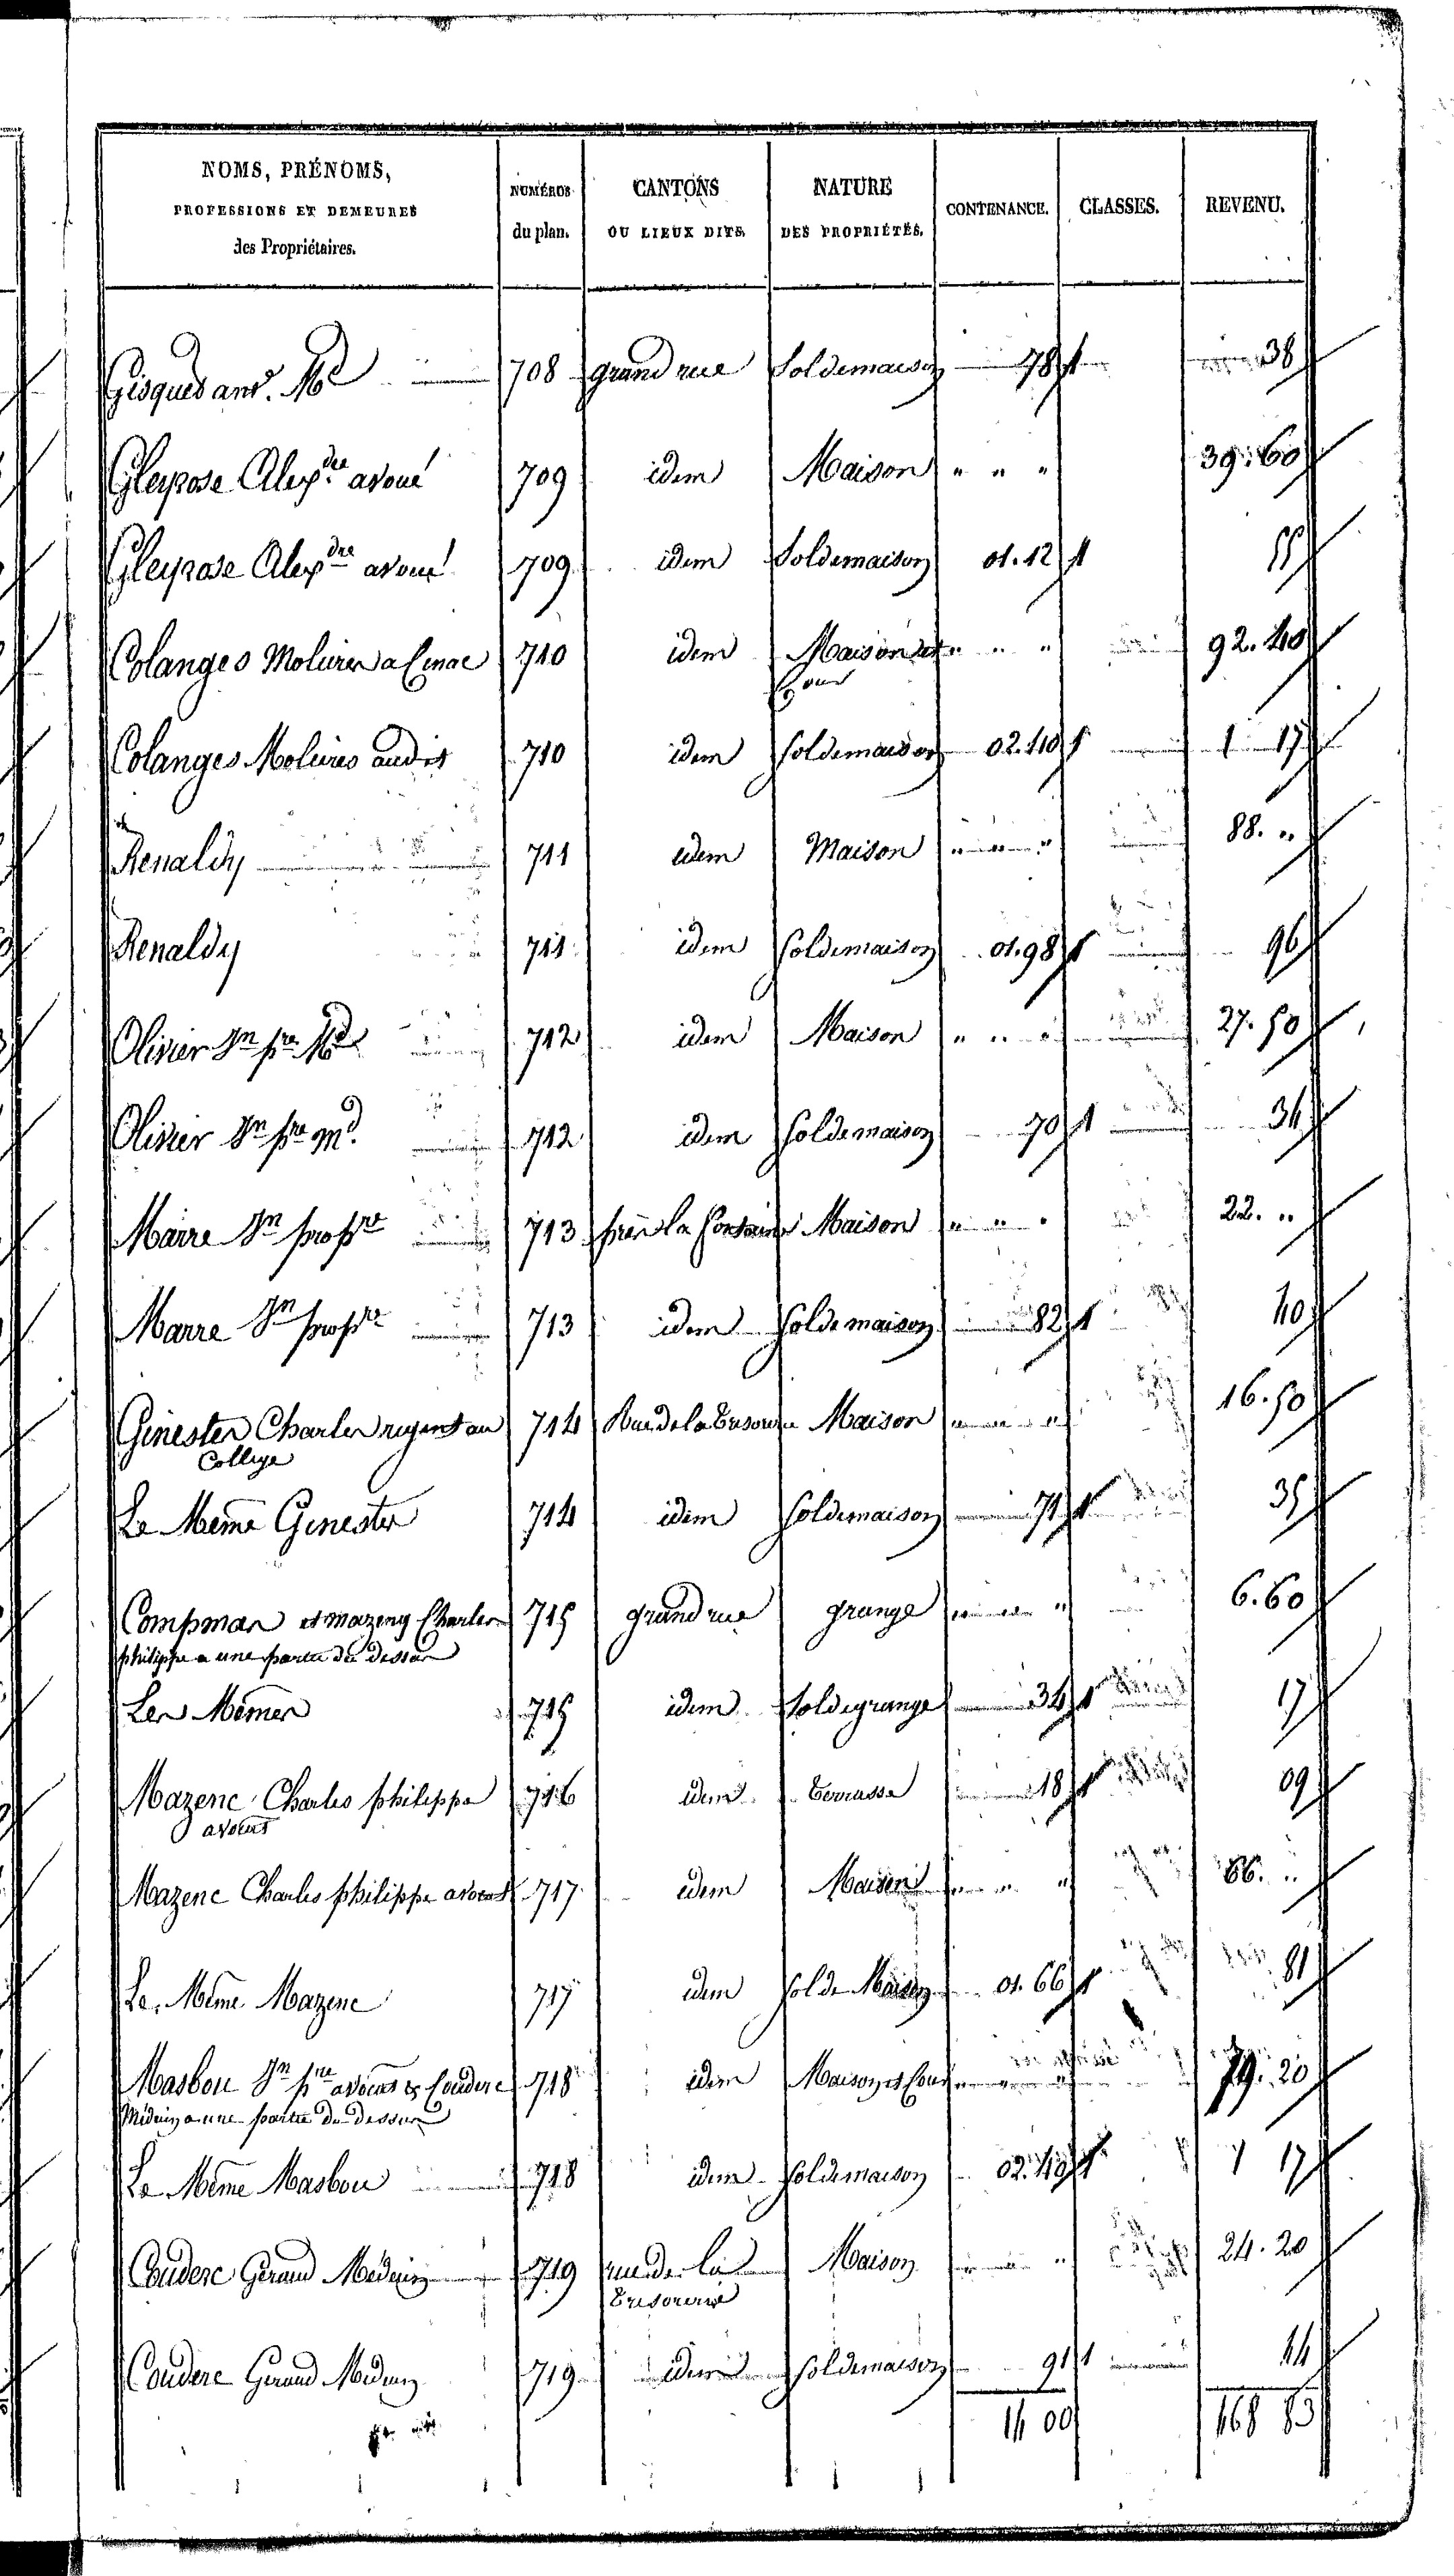 NOMS, PRÉNOMS, PROFESSIONS ET DEMEURES des Propriétaires. | NUMÉROS du plan. | CANTONS OU LIEUX DITS. | NATURE DES PROPRIÉTÉS. | CONTENANCE. | CLASSES. | REVENU.
Gisques ant. Md 708 grand rue Sol de maison 78 1 38
Gleyrose Alexdre avoué 709 idem Maison " " " 39. 60
Gleyrose Alexdre avoué 709 idem Sol de maison 01. 12 1 55
Colanges Molieres a 710 idem Maison et Cour " " " 92. 40
Colanges Molieres audit 710 idem Sol de maison 02. 40 1 1 17
Renaldy 711 idem Maison " " " 88. "
Renaldy 711 idem Sol de maison 01. 98 1 96
Olivier Jn pre Md 712 idem Maison " " " 27. 50
Olivier Jn pre Md. 712 idem Sol de maison 70 1 34
Marre Jn propre 713 près la fontaine Maison " " " 22. "
Marre Jn propre 713 idem Sol de maison 82 1 40
Ginester Charles regent au 714 Rue de la Tresorerie Maison " " " 16. 50
College
Le Meme Ginester 714 idem Sol de maison 71 1 35
Compmas et mazenq Charles 715 grand rue grange " " " 6. 60
philippe a une partie du dessus
Les Mêmes 715 idem Sol de grange 34 1 17
Mazenc Charles philippe 716 idem Terrasse 18 1 09
avocat
Mazenc Charles philippe avocat 717 idem Maison " " " 66. "
Le Même Mazenc 717 idem Sol de Maison 01. 66 1 81
Masbou Jn pre avocat & Couderc 718 idem Maison et Cour " " " 79. 20
Médecin a une partie du dessus
Le Même Masbou 718 idem Sol de maison 02. 40 1 1 17
Couderc Geraud Médecin 719 rue de la Maison " " " 24. 20
Tresorerie
Couderc Geraud Medecin 719 idem Sol de maison 91 1 44
14 00 468 83